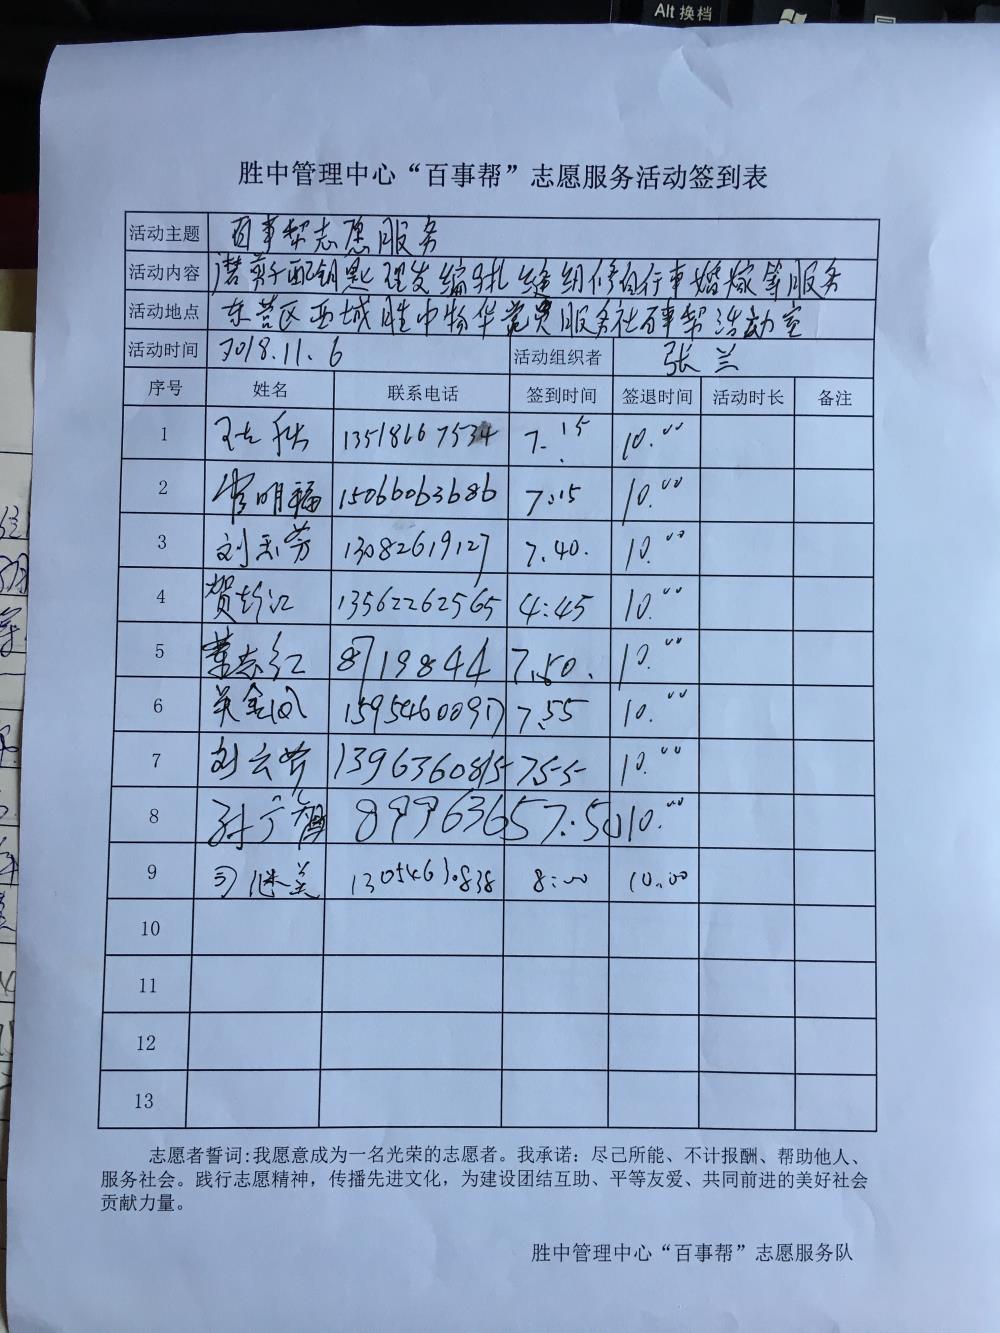 Alt 换档
胜中管理中心“百事帮”志愿服务活动签到表
活动主题 百事帮志愿服务
活动内容 剪子配钥匙理发编扎缝纫修自行车婚嫁等服务
活动地点 东营区西城胜中物华党员服务社百事帮活动室
活动时间 2018.11.6 活动组织者 张兰
序号 姓名 联系电话 签到时间 签退时间 活动时长 备注
1 13518667534 7:15 10:00
2 明福 15066063686 7:15 10:00
3 刘玉芳 13082619127 7.40. 10:00
4 贺 13562262565 4:45 10:00
5 董志红 8719844 7.50. 10:00
6 吴金凤 15954600917 7.55 10:00
7 刘云芳 1396360815 755 10:00
8 孙广智 8996365 7:50 10:00
9 司继美 8:00 10:00
10
11
12
13
志愿者誓词：我愿意成为一名光荣的志愿者。我承诺：尽己所能、不计报酬、帮助他人、
服务社会。践行志愿精神，传播先进文化，为建设团结互助、平等友爱、共同前进的美好社会
贡献力量。
胜中管理中心“百事帮”志愿服务队